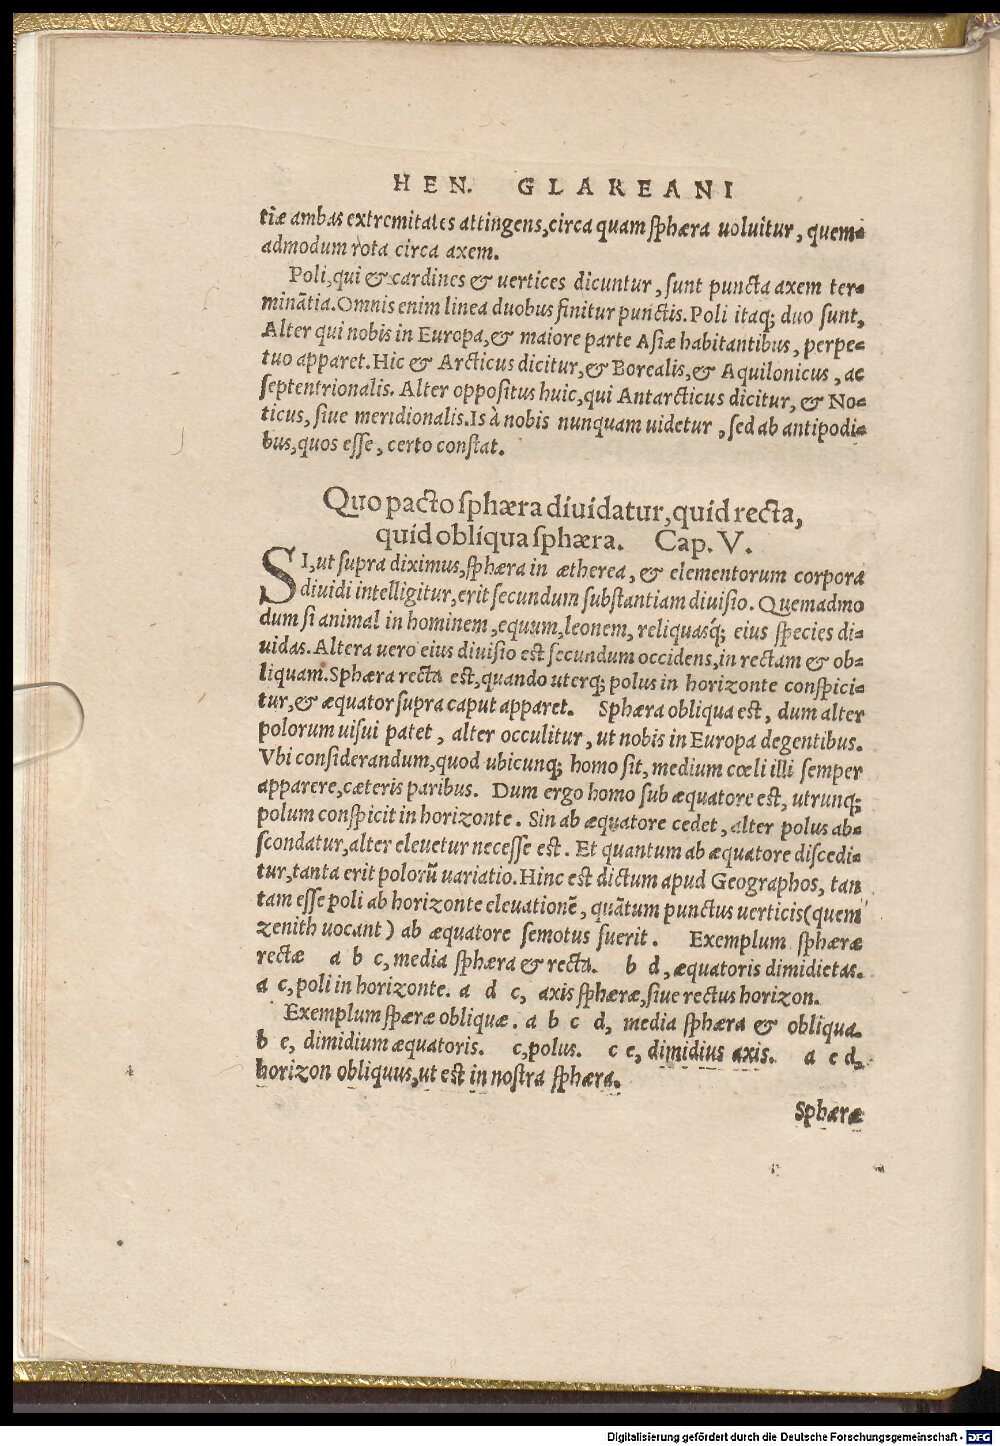 HEN. GLAREANI
tiæ ambas extremitates attingens,circa quam sphæra uoluitur, quem=
admodum rota circa axem.
Poli,qui & cardines & uertices dicuntur, sunt puncta axem ter=
minãtia.Omnis enim linea duobus finitur punctis.Poli itaq; duo sunt,
Alter qui nobis in Europa,& maiore parte Asiæ habitantibus, perpe=
tuo apparet.Hic & Arcticus dicitur,& Borealis,& Aquilonicus, ac
septentrionalis. Alter oppositus huic,qui Antarcticus dicitur, & No=
ticus, siue meridionalis.Is à nobis nunquam uidetur, sed ab antipodi=
bus,quos esse, certo constat.
Quo pacto sphæra diuidatur,quid recta,
quid obliqua sphæra. Cap. V.
SI,ut supra diximus,sphæra in ætherea, & elementorum corpora
diuidi intelligitur,erit secundum substantiam diuisio. Quemadmo
dum si animal in hominem,equum,leonem, reliquasq́; eius species di=
uidas.Altera uero eius diuisio est secundum occidens,in rectam & ob=
liquam.Sphæra recta est,quando uterq; polus in horizonte conspici=
tur,& æquator supra caput apparet. Sphæra obliqua est, dum alter
polorum uisui patet, alter occulitur, ut nobis in Europa degentibus.
Vbi considerandum,quod ubicunq; homo sit, medium cœli illi semper
apparere,cæteris paribus. Dum ergo homo sub æquatore est, utrunq;
polum conspicit in horizonte. Sin ab æquatore cedet, alter polus ab=
scondatur,alter eleuetur necesse est. Et quantum ab æquatore discedi=
tur,tanta erit polorũ uariatio.Hinc est dictum apud Geographos, tan
tam esse poli ab horizonte eleuationẽ, quãtum punctus uerticis(quem
zenith uocant) ab æquatore semotus fuerit. Exemplum sphæræ
rectæ a b c, media sphæra & recta. b d, æquatoris dimidietas.
a c, poli in horizonte. a d c, axis sphæræ,siue rectus horizon.
Exemplum spæræ obliquæ. a b c d, media sphæra & obliqua.
b e, dimidium æquatoris. c,polus. c e, dimidius axis. a e d,
horizon obliquus,ut est in nostra sphæra.
Sphæræ
Digitalisierung gefördert durch die Deutsche Forschungsgemeinschaft - DFG